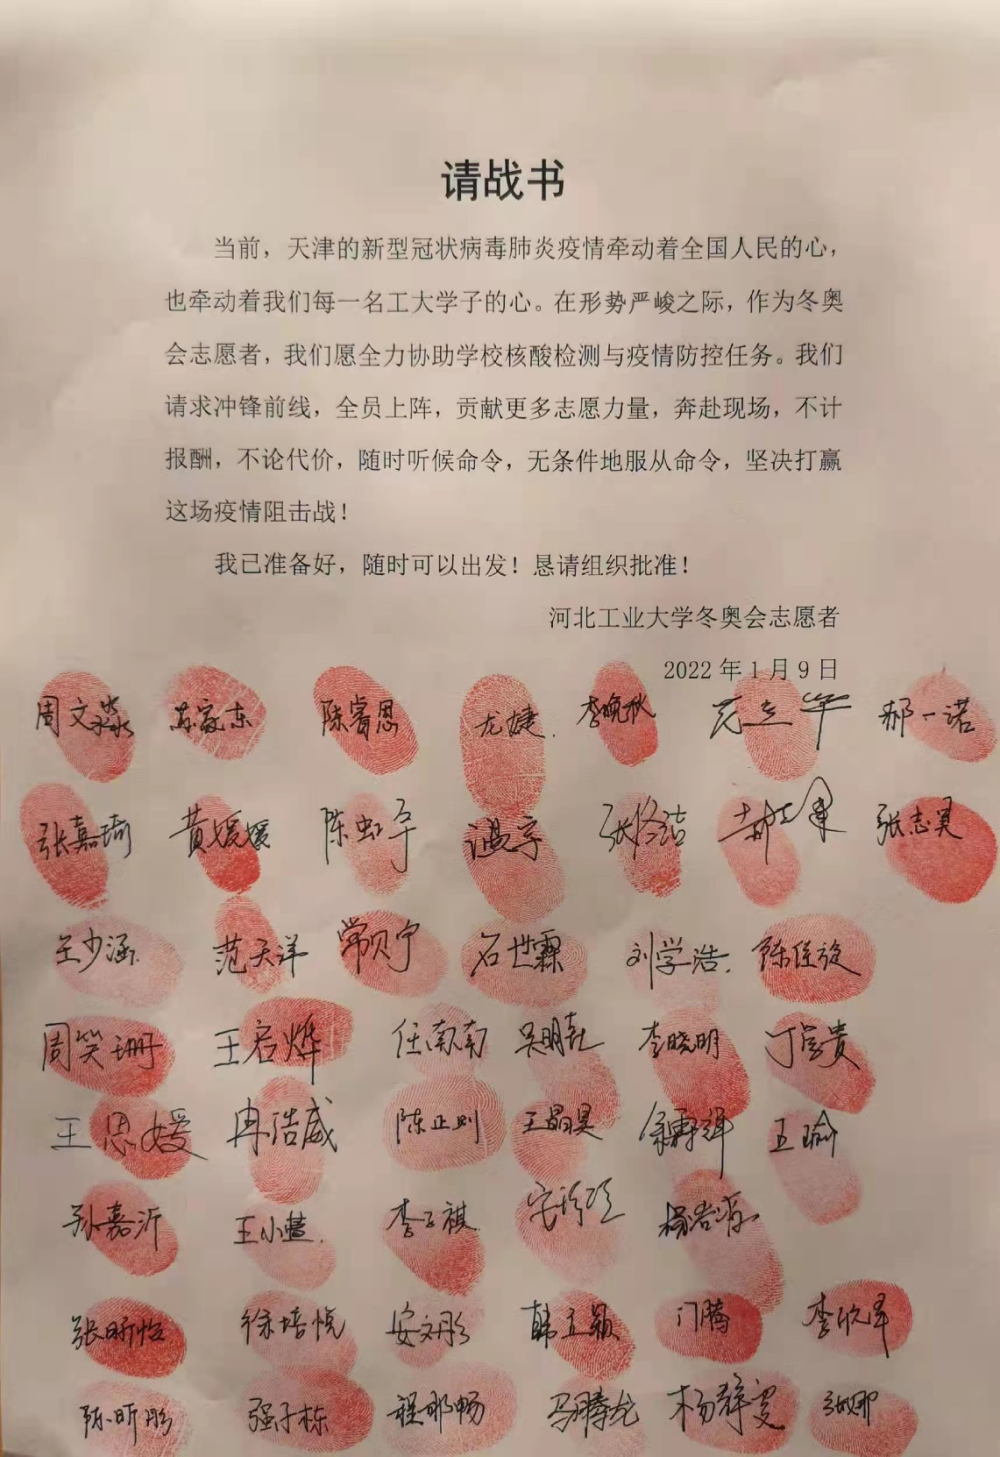 请战书
当前，天津的新型冠状病毒肺炎疫情牵动着全国人民的心，
也牵动着我们每一名工大学子的心。在形势严峻之际，作为冬奥
会志愿者，我们愿全力协助学校核酸检测与疫情防控任务。我们
请求冲锋前线，全员上阵，贡献更多志愿力量，奔赴现场，不计
报酬，不论代价，随时听候命令，无条件地服从命令，坚决打赢
这场疫情阻击战！
我已准备好，随时可以出发！恳请组织批准！
河北工业大学冬奥会志愿者
2022 年 1 月 9 日
周文淼 苏家东 陈睿恩 尤婕 李晚秋 郝一诺
张嘉琦 黄媛媛 陈虹宇 温宇 张志昊
王少涵 范天洋 常贝宁 石世霖 刘学浩 陈佳旋
周笑珊 王启烨 任南南 李晓明
王思媛 冉浩威 陈正则 王晶昊 王瑜
孙嘉沂 王小慧 李子祺
张昕怡 徐培悦 安文彤 韩立颖 门腾 李欣泽
陈昕彤 强子栋 程郡畅 马腾龙 杨静雯 张娜